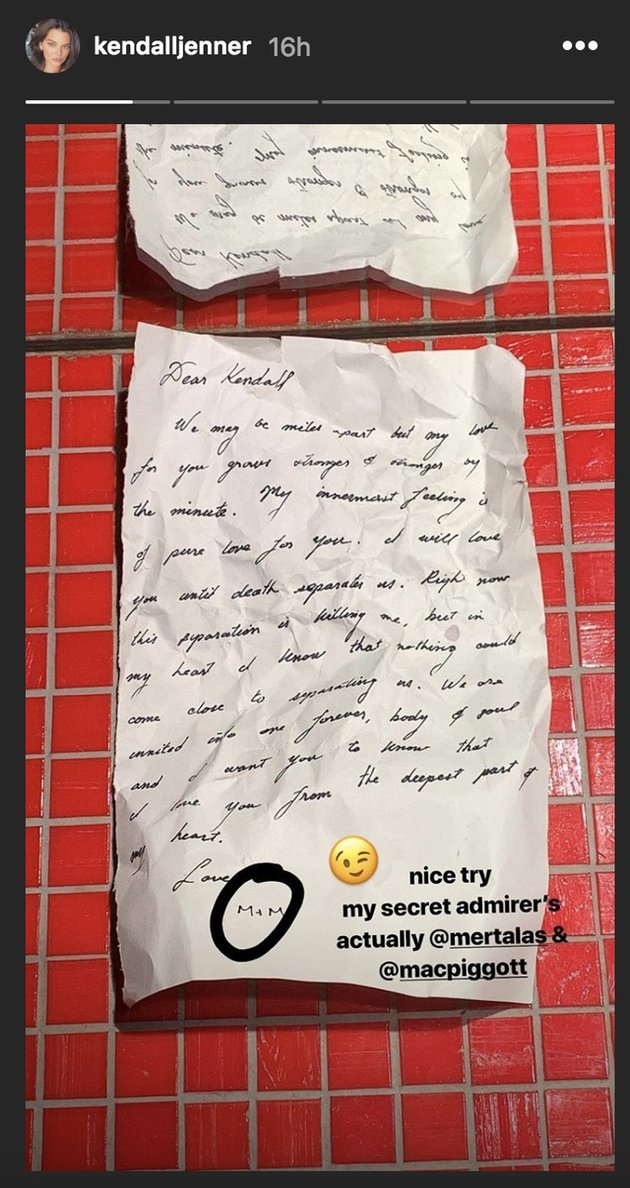 kendalljenner 16h
the minute. My innermost feeling is
for you grows stronger & stronger by
We may be miles apart but my love
Dear Kendall
Dear Kendall
We may be miles apart but my love
for you grows stronger & stronger by
the minute. My innermost feeling is
of pure love for you. I will love
you until death separates us. Right now
this separation is killing me, but in
my heart I know that nothing could
come close to separating us. We are
unnited into one forever, body & soul
and I want you to know that
I love you from the deepest part of
my heart.
Love
M+M
😉 nice try
my secret admirer's
actually @mertalas &
@macpiggott